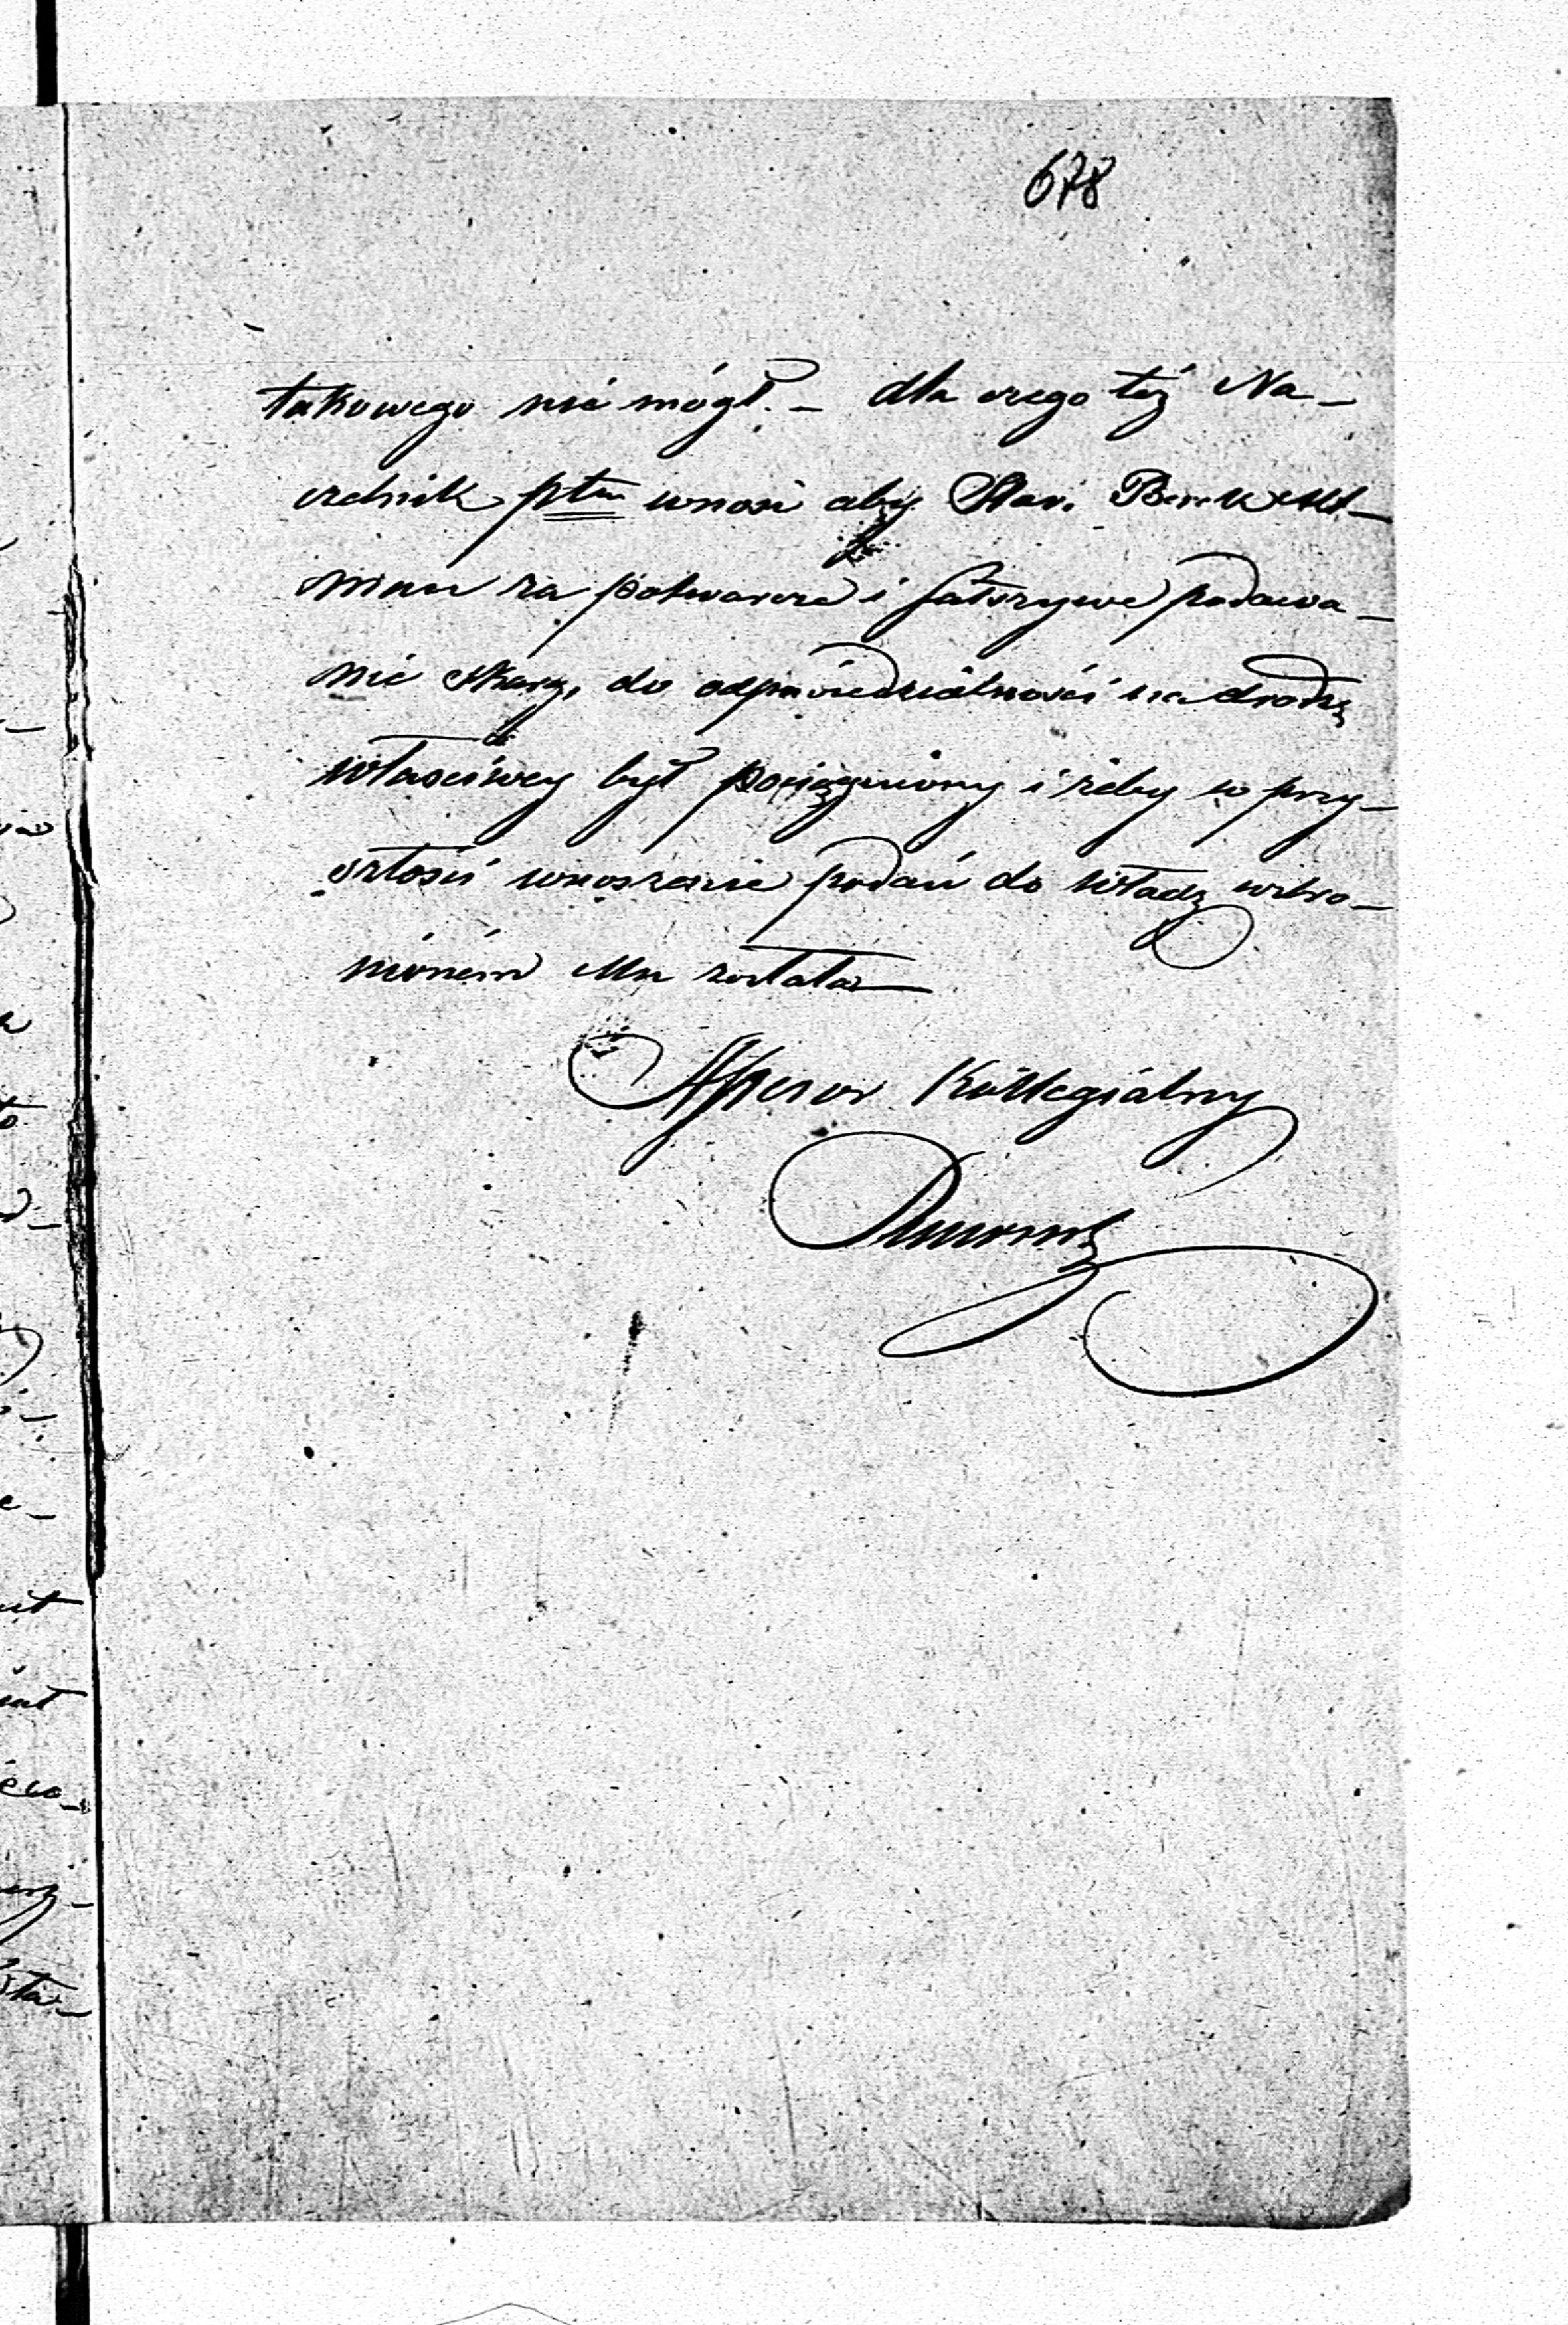 678
takowego nie mógł. – dla czego też Na-
czelnik ptu wnosi aby Star: Berek
man za potwarze i fałszywe podawa-
nie skarg, do odpowiedzialności na drodze
właściwey był pociągniony i żeby w przy-
szłości wnoszenie podań do władz wzbro-
nionem Mu została
Assesor Kollegialny